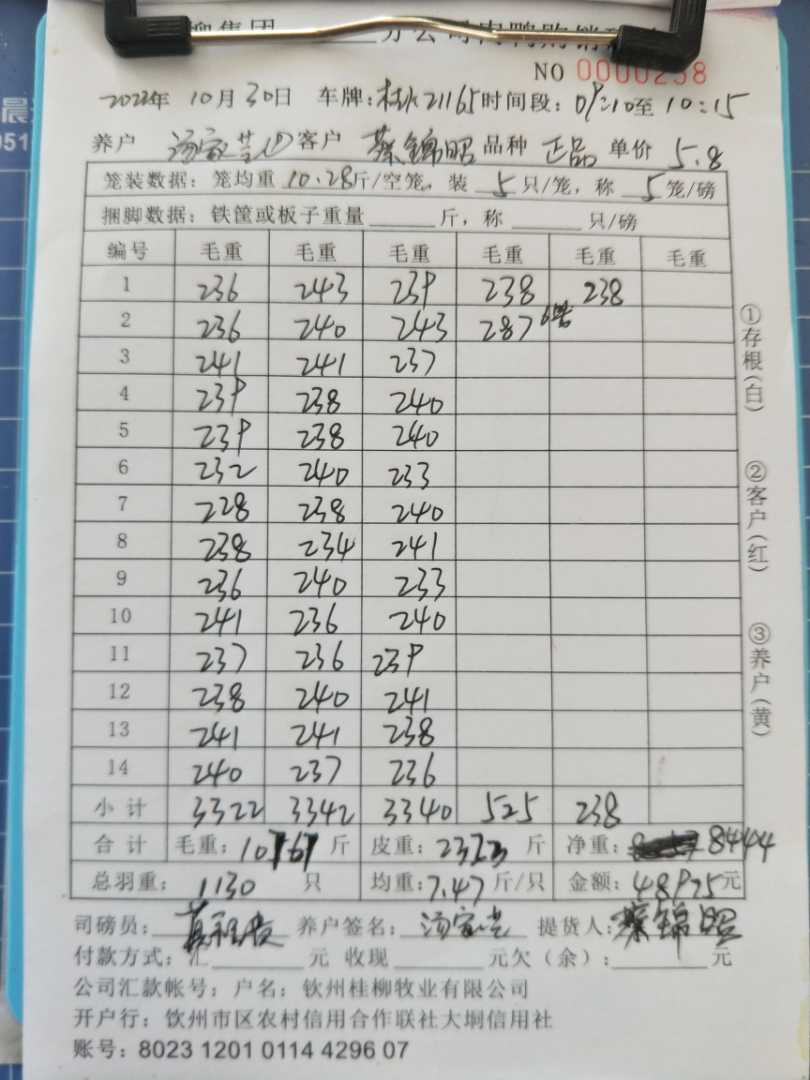 分公司肉鸭购销
NO 0000238
2022年 10月30日 车牌: 21165 时间段: 09:10至 10:15
养户 汤家芸 客户 蔡锦昭 品种 正品 单价 5.8
笼装数据: 笼均重 10.28 斤/空笼, 装 5 只/笼, 称 5 笼/磅
捆脚数据: 铁筐或板子重量 斤, 称 只/磅
编号 毛重 毛重 毛重 毛重 毛重 毛重
1 236 243 239 238 238
2 236 240 243 287 6笼
3 241 241 237
4 239 238 240
5 239 238 240
6 232 240 233
7 228 238 240
8 238 234 241
9 236 240 233
10 241 236 240
11 237 236 239
12 238 240 241
13 241 241 238
14 240 237 236
小计 3322 3342 3340 525 238
合计 毛重: 10767 斤 皮重: 2323 斤 净重: 8444
总羽重: 1130 只 均重: 7.47 斤/只 金额: 48975 元
司磅员: 养户签名: 提货人: 蔡锦昭
付款方式: 汇 元 收现 元欠(余): 元
公司汇款帐号: 户名: 钦州桂柳牧业有限公司
开户行: 钦州市区农村信用合作联社大垌信用社
账号: 8023 1201 0114 4296 07
①存根(白)
②客户(红)
③养户(黄)